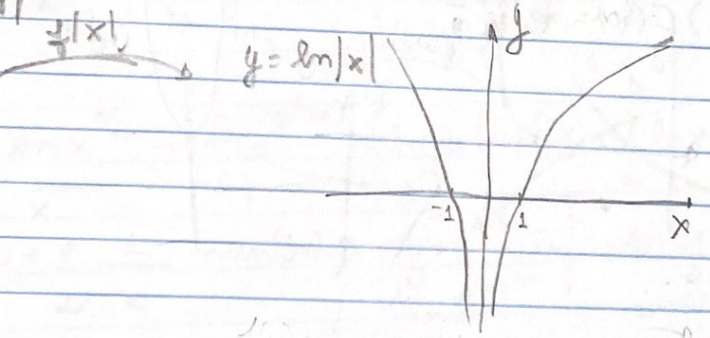 y = ln|x|
y
-1
1
x